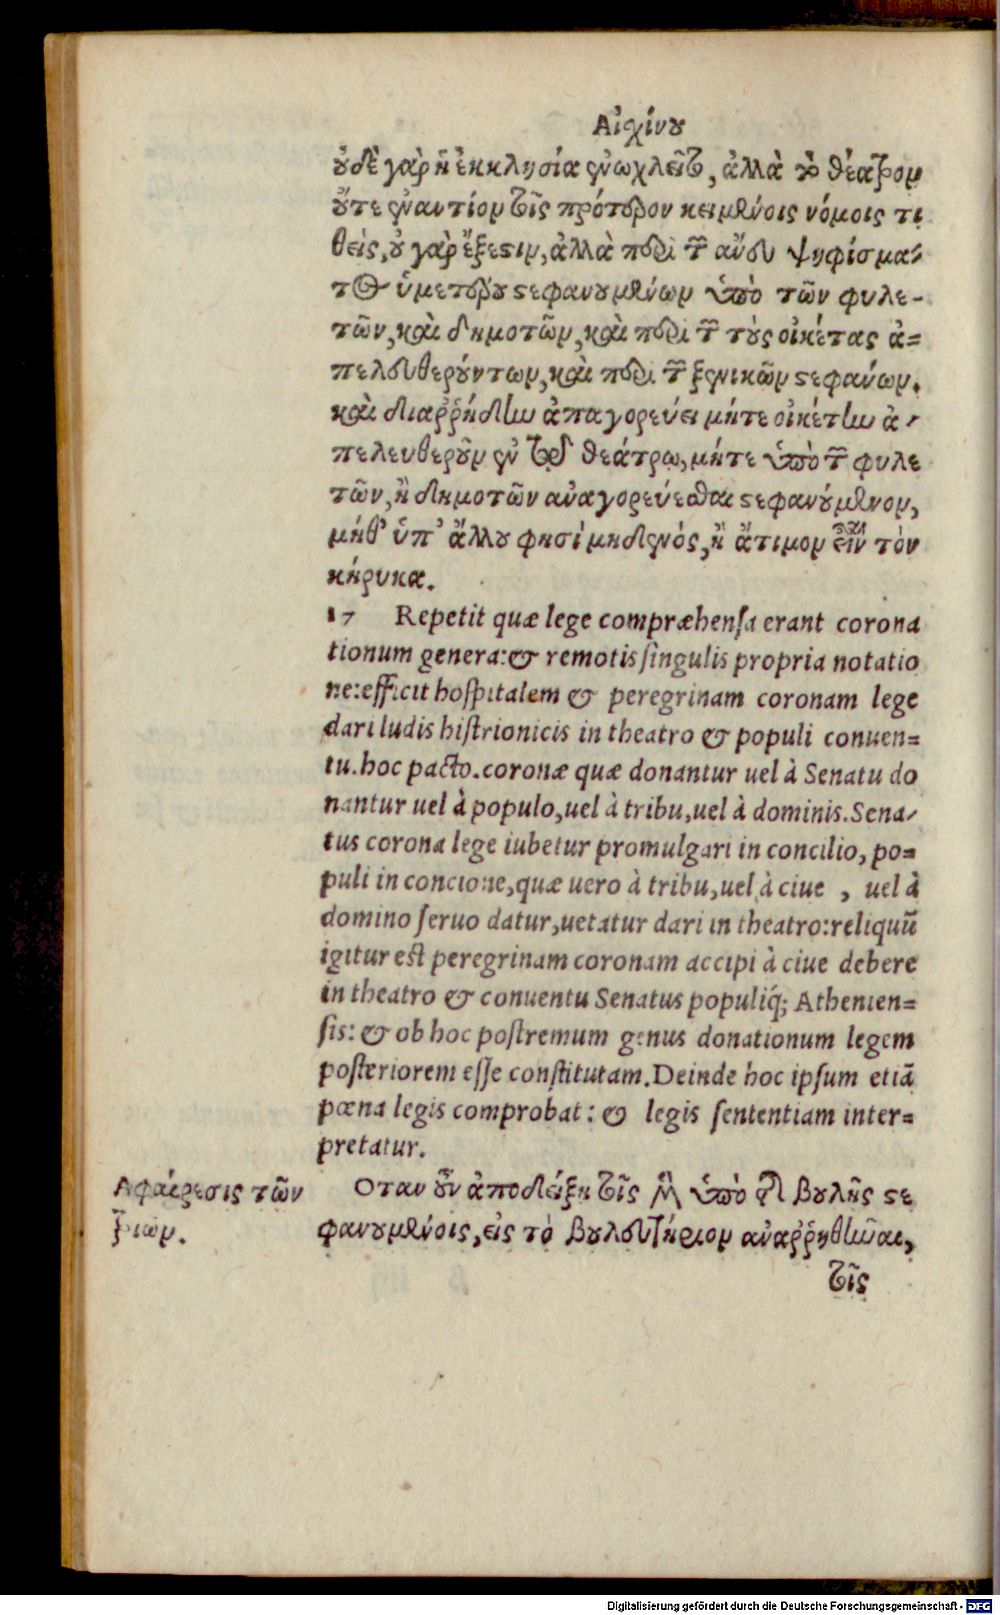 Αἰχίνου
οὐδὲ γὰρ ἡ ἐκκλησία ἠνωχλεῖτο, ἀλλὰ τὸ θέατρον
οὔτε ἐναντίον τοῖς πρότερον κειμένοις νόμοις τι
θεὶς, οὐ γὰρ ἔξεστιν, ἀλλὰ περὶ τῶν ἄνευ ψηφίσμα-
τος ὑμετέρου στεφανουμένων ὑπὸ τῶν φυλε-
τῶν, καὶ δημοτῶν, καὶ περὶ τῶν τοὺς οἰκέτας ἀ=
πελευθερούντων, καὶ περὶ τῶν ξενικῶν στεφάνων.
καὶ διαῤῥήδην ἀπαγορεύει μήτε οἰκέτην ἀ-
πελευθεροῦν ἐν τῷ θεάτρῳ, μήτε ὑπὸ τῶν φυλε
τῶν, ἢ δημοτῶν ἀναγορεύεσθαι στεφανούμενον,
μήθ' ὑπ' ἄλλου φησὶ μηδενός, ἢ ἄτιμον εἶναι τὸν
κήρυκα.
17 Repetit quæ lege compræhensa erant corona
tionum genera:& remotis singulis propria notatio
ne:efficit hospitalem & peregrinam coronam lege
dari ludis histrionicis in theatro & populi conuen=
tu. hoc pacto. coronæ quæ donantur uel à Senatu do
nantur uel à populo, uel à tribu, uel à dominis. Sena-
tus corona lege iubetur promulgari in concilio, po=
puli in concione, quæ uero à tribu, uel à ciue , uel à
domino seruo datur, uetatur dari in theatro:reliquũ
igitur est peregrinam coronam accipi à ciue debere
in theatro & conuentu Senatus populiq́; Athenien=
sis: & ob hoc postremum genus donationum legem
posteriorem esse constitutam. Deinde hoc ipsum etiã
pœna legis comprobat: & legis sententiam inter=
pretatur.
Αφαίρεσις τῶν
τριῶν.
Οταν οὖν ἀποδείξῃ τοῖς μὲν ὑπὸ τῆς βουλῆς στε
φανουμένοις, εἰς τὸ βουλευτήριον ἀναῤῥηθῆναι,
τοῖς
Digitalisierung gefördert durch die Deutsche Forschungsgemeinschaft - DFG